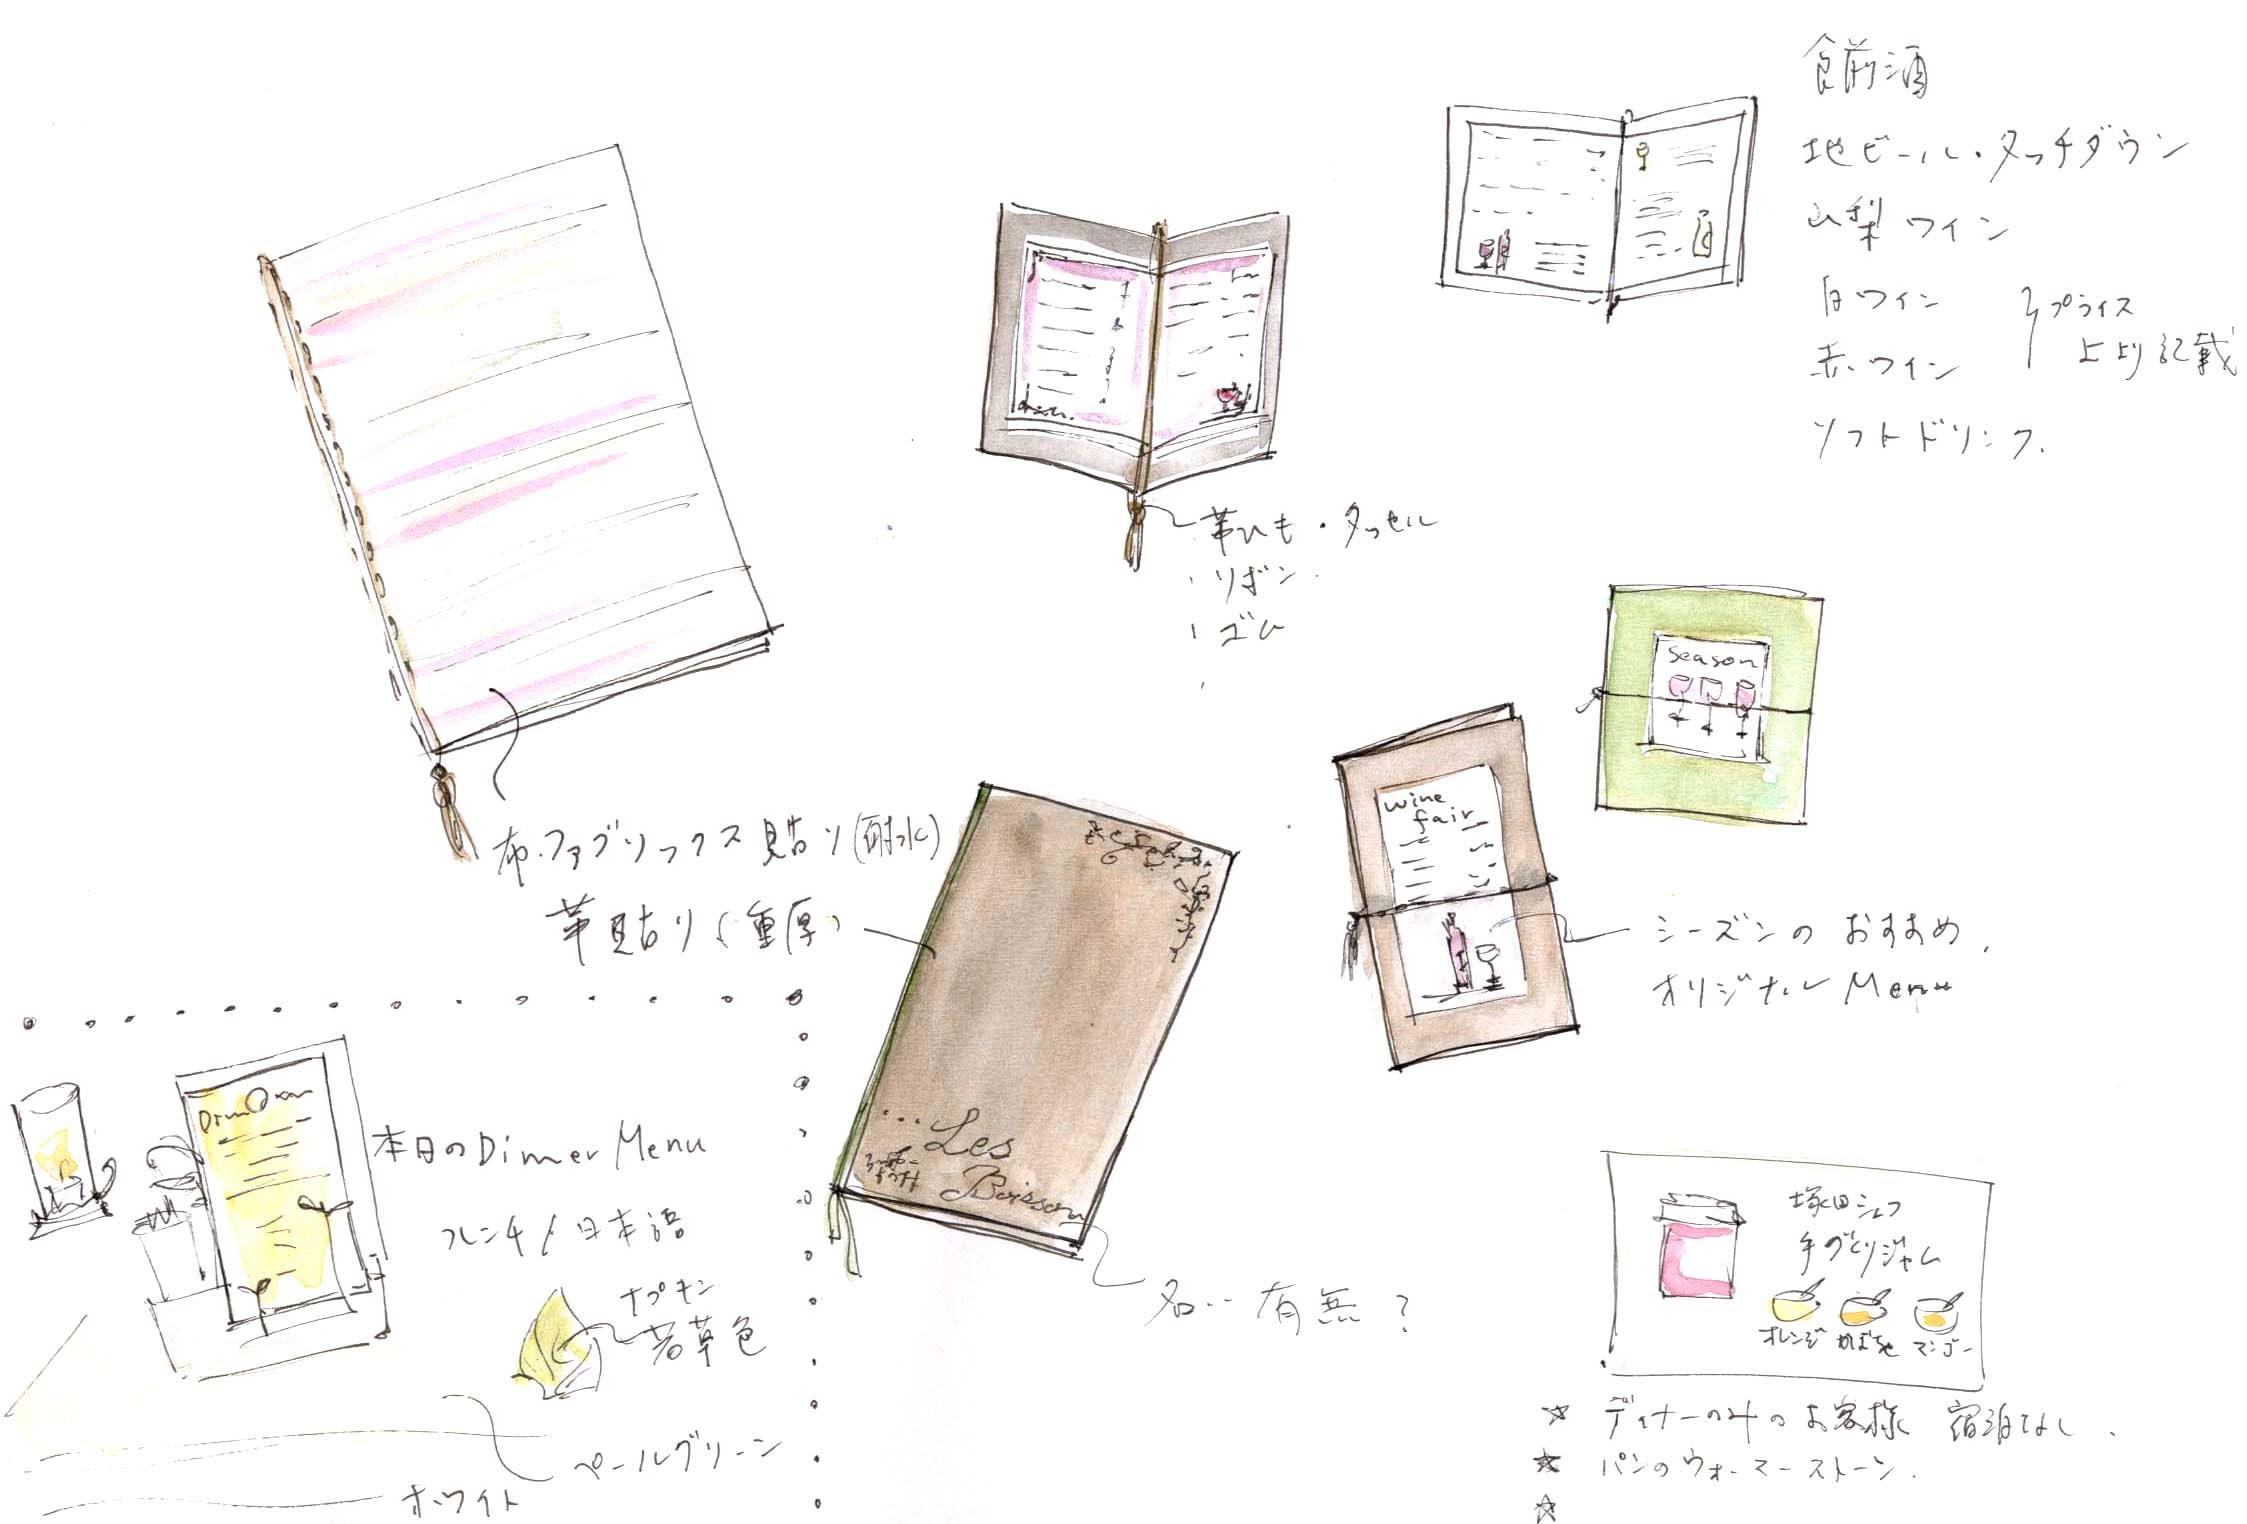 食前酒
地ビール・タッチダウン
山梨ワイン
白ワイン
赤ワイン
プライス
上より記載
ソフトドリンク.
革ひも・タッセル
・リボン.
・ゴム
season
wine
fair
布・ファブリックス貼り(耐水)
革貼り(重厚)
シーズンのおすすめ.
オリジナルMenu
...Les
Boisson
名… 有無?
本日のDinner Menu
フレンチ/日本語
ナプキン
若草色
ペールグリーン
ホワイト
塚田シェフ
手づくりジャム
オレンジ かぼちゃ マンゴー
☆ ディナーのみのお客様 宿泊なし.
★ パンのウォーマーストーン.
☆